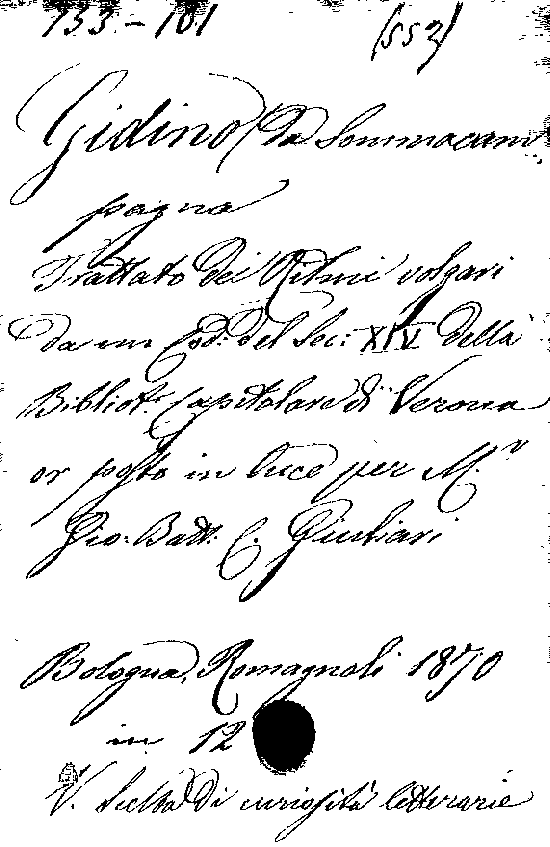 133 - 101 (552)
Gidino da Sommacam
pagna
Trattato dei Ritmi volgari
da un Cod: del Sec: XIV della
Bibliot.ª Capitolare di Verona
or posto in luce per M.r
Gio: Batt: C. Giuliari
Bologna, Romagnoli 1870
in 12
V. Scelta di curiosità letterarie